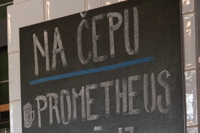 NA ČEPU
PROMETHEUS